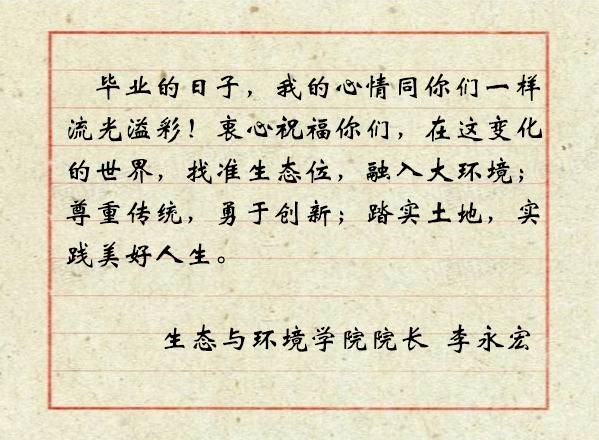 毕业的日子，我的心情同你们一样
流光溢彩！衷心祝福你们，在这变化
的世界，找准生态位，融入大环境；
尊重传统，勇于创新；踏实土地，实
践美好人生。
生态与环境学院院长 李永宏